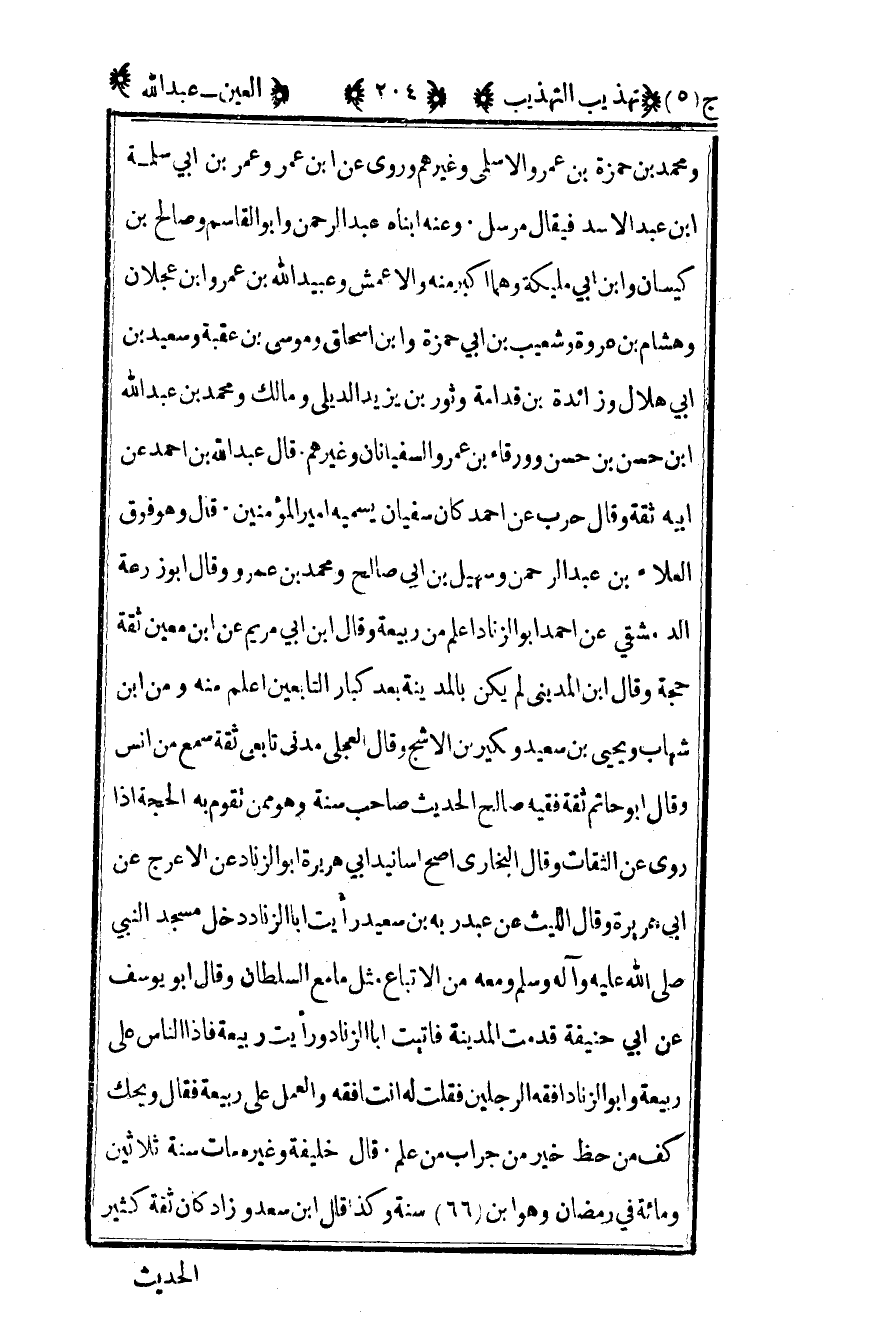 ج (٥) تهذيب التهذيب ٢٠٤ العين_عبدالله
ومحمد بن حمزة بن عمرو الاسلمى وغيرهم وروى عن ابن عمر وعمر بن ابي سلمة
ابن عبد الاسد فيقال مرسل · وعنه ابناه عبد الرحمن وابو القاسم وصالح بن
كيسان وابن ابي مليكة وهما اكبر منه والاعمش وعبيد الله بن عمر وابن عجلان
وهشام بن عروة وشعيب بن ابي حمزة وابن اسحاق وموسى بن عقبة وسعيد بن
ابي هلال وزائدة بن قدامة وثور بن يزيد الديلى ومالك ومحمد بن عبدالله
ابن حسن بن حسن وورقاء بن عمر والسفيانان وغيرهم · قال عبدالله بن احمد عن
ابيه ثقة وقال حرب عن احمد كان سفيان يسميه امير المؤمنين · قال وهو فوق
العلاء بن عبد الرحمن وسهيل بن ابي صالح ومحمد بن عمرو وقال ابوزرعة
الدمشقي عن احمد ابو الزناد اعلم من ربيعة وقال ابن ابي مريم عن ابن معين ثقة
حجة وقال ابن المدينى لم يكن بالمدينة بعد كبار التابعين اعلم منه ومن ابن
شهاب ويحيى بن سعيد وبكير بن الاشج وقال العجلى مدنى تابعى ثقة سمع من انس
وقال ابو حاتم ثقة فقيه صالح الحديث صاحب سنة وهو ممن تقوم به الحجة اذا
روى عن الثقات وقال البخارى اصح اسانيد ابي هريرة ابو الزناد عن الاعرج عن
ابي هريرة وقال الليث عن عبدربه بن سعيد رأيت ابا الزناد دخل مسجد النبي
صلى الله عليه وآله وسلم ومعه من الاتباع مثل ما مع السلطان وقال ابو يوسف
عن ابي حنيفة قدمت المدينة فاتيت ابا الزناد ورأيت ربيعة فاذا الناس على
ربيعة وابو الزناد افقه الرجلين فقلت له انت افقه والعمل على ربيعة فقال ويحك
كف من حظ خير من جراب من علم · قال خليفة وغيره مات سنة ثلاثين
ومائة في رمضان وهو ابن (٦٦) سنة وكذا قال ابن سعد وزاد كان ثقة كثير
الحديث